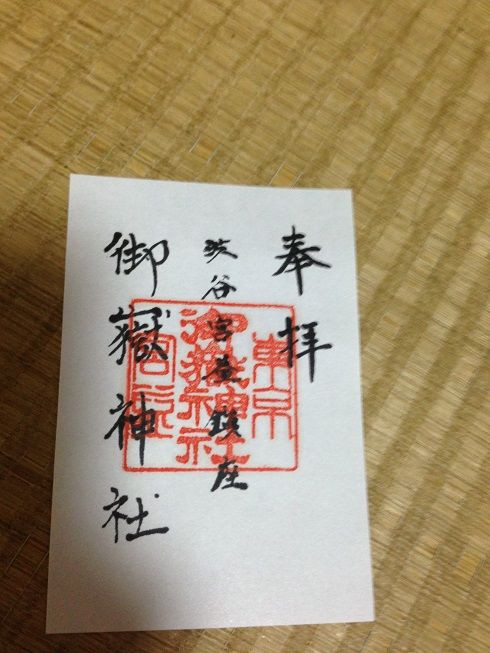 奉拝
渋谷宮益鎮座
御嶽神社
東京
御嶽神社
宮益